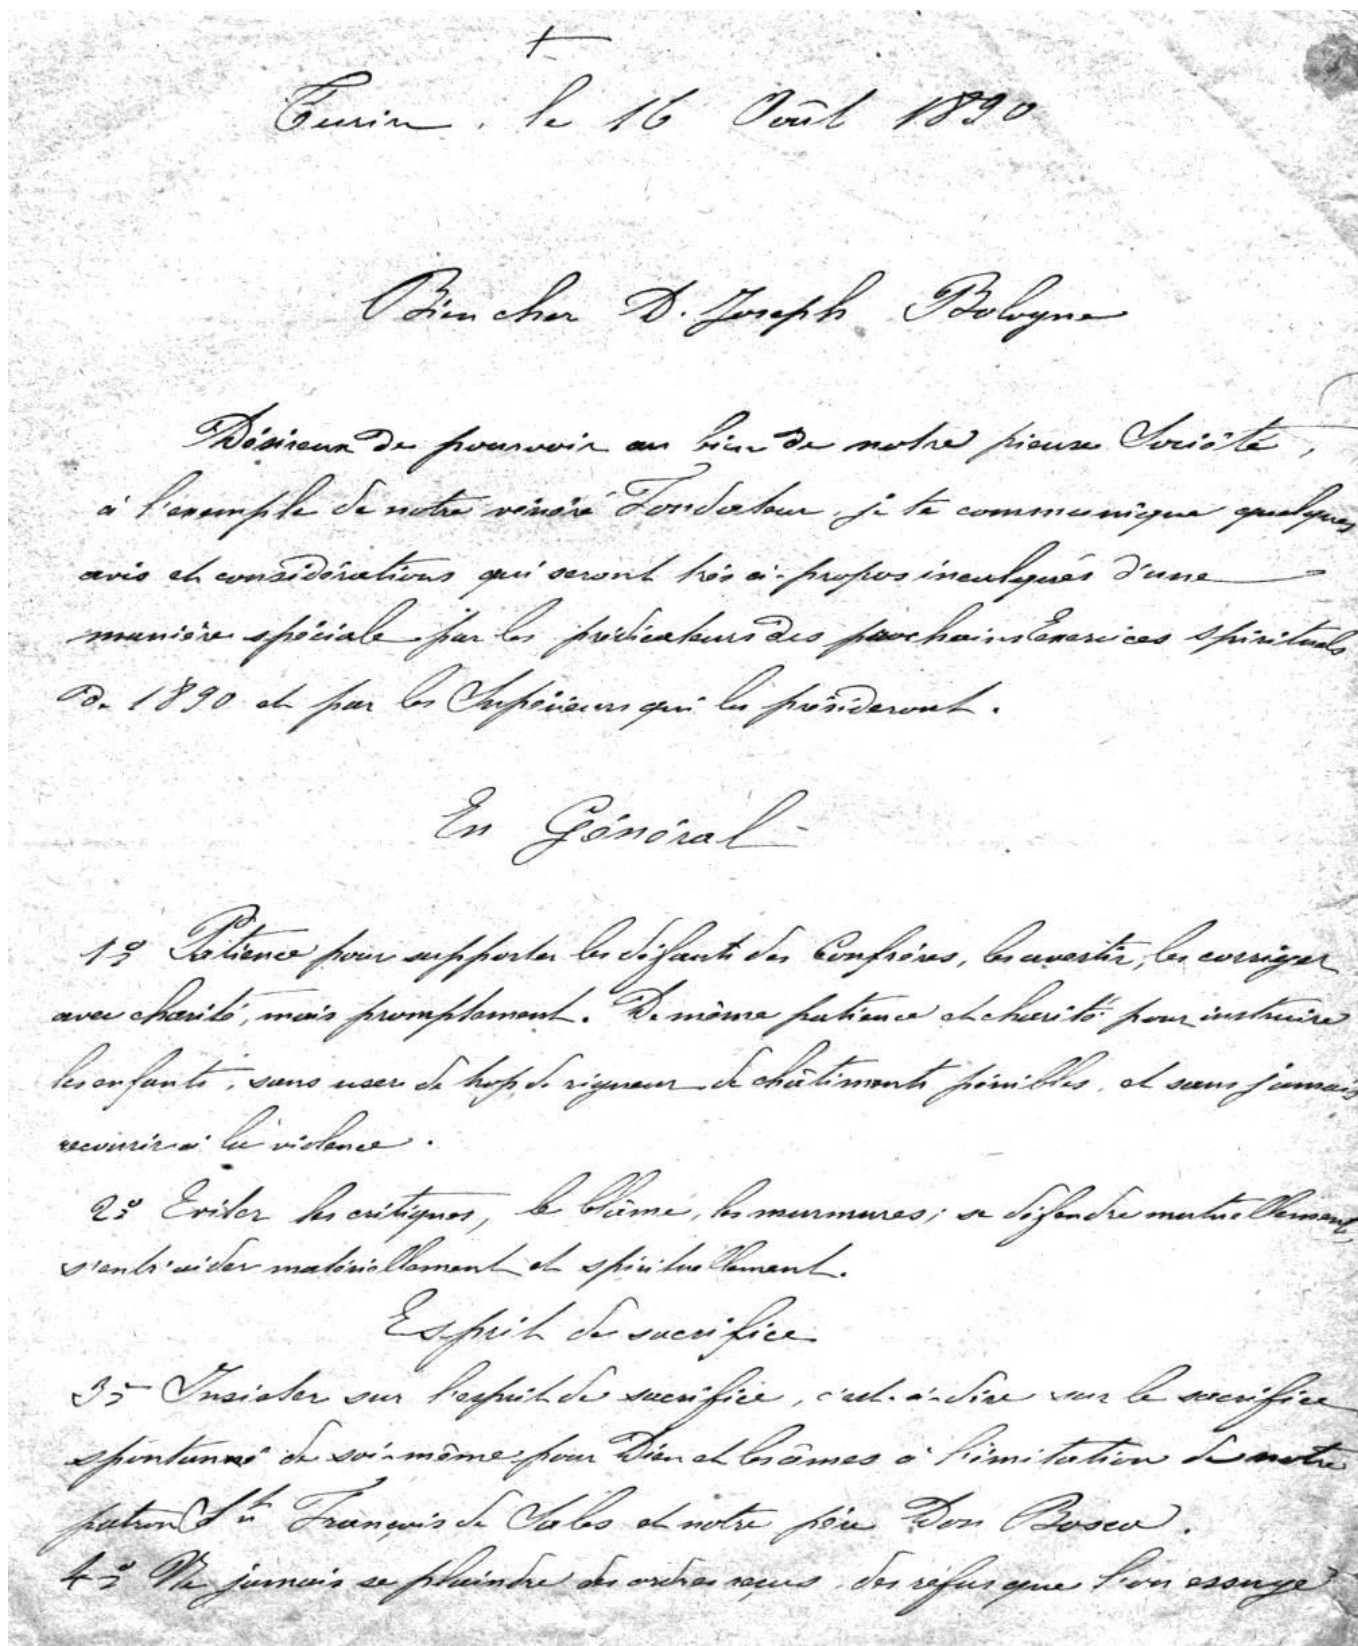 +
Turin, le 16 Août 1890
Bien cher D. Joseph Bologne
Désireux de pourvoir au bien de notre pieuse Société,
à l'exemple de notre vénéré Fondateur, je te communique quelques
avis et considérations qui seront très à-propos inculqués d'une
manière spéciale par les prédicateurs des prochains Exercices spirituels
de 1890 et par les Supérieurs qui les présideront.
En Général
1º Patience pour supporter les défauts des Confrères, les avertir, les corriger
avec charité, mais promptement. De même patience et charité pour instruire
les enfants, sans user de trop de rigueur de châtiments pénibles, et sans jamais
recourir à la violence.
2º Eviter les critiques, le blâme, les murmures; se défendre mutuellement,
s'entr'aider matériellement et spirituellement.
Esprit de sacrifice
3º Insister sur l'esprit de sacrifice, c'est-à-dire sur le sacrifice
spontanné de soi-même pour Dieu et les âmes à l'imitation de notre
patron St François de Sales et notre père Don Bosco.
4º Ne jamais se plaindre des ordres reçus, des refus que l'on essuye